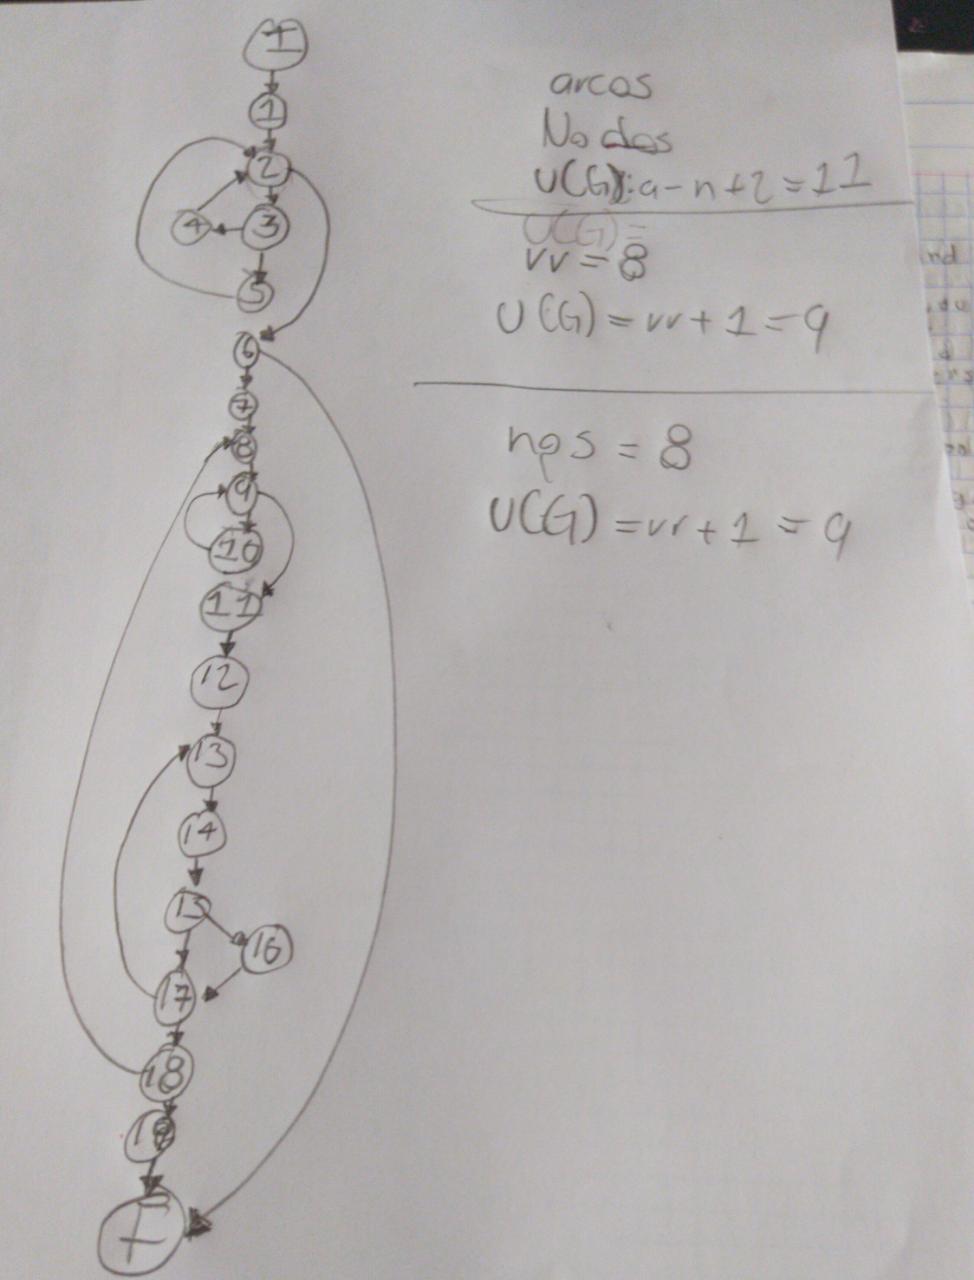 I
1
2
4 3
5
6
7
8
9
10
11
12
13
14
15
16
17
18
19
arcos
Nodos
U(G): a - n + 2 = 11
U(G) =
vr = 8
U(G) = vr + 1 = 9
nps = 8
U(G) = vr + 1 = 9